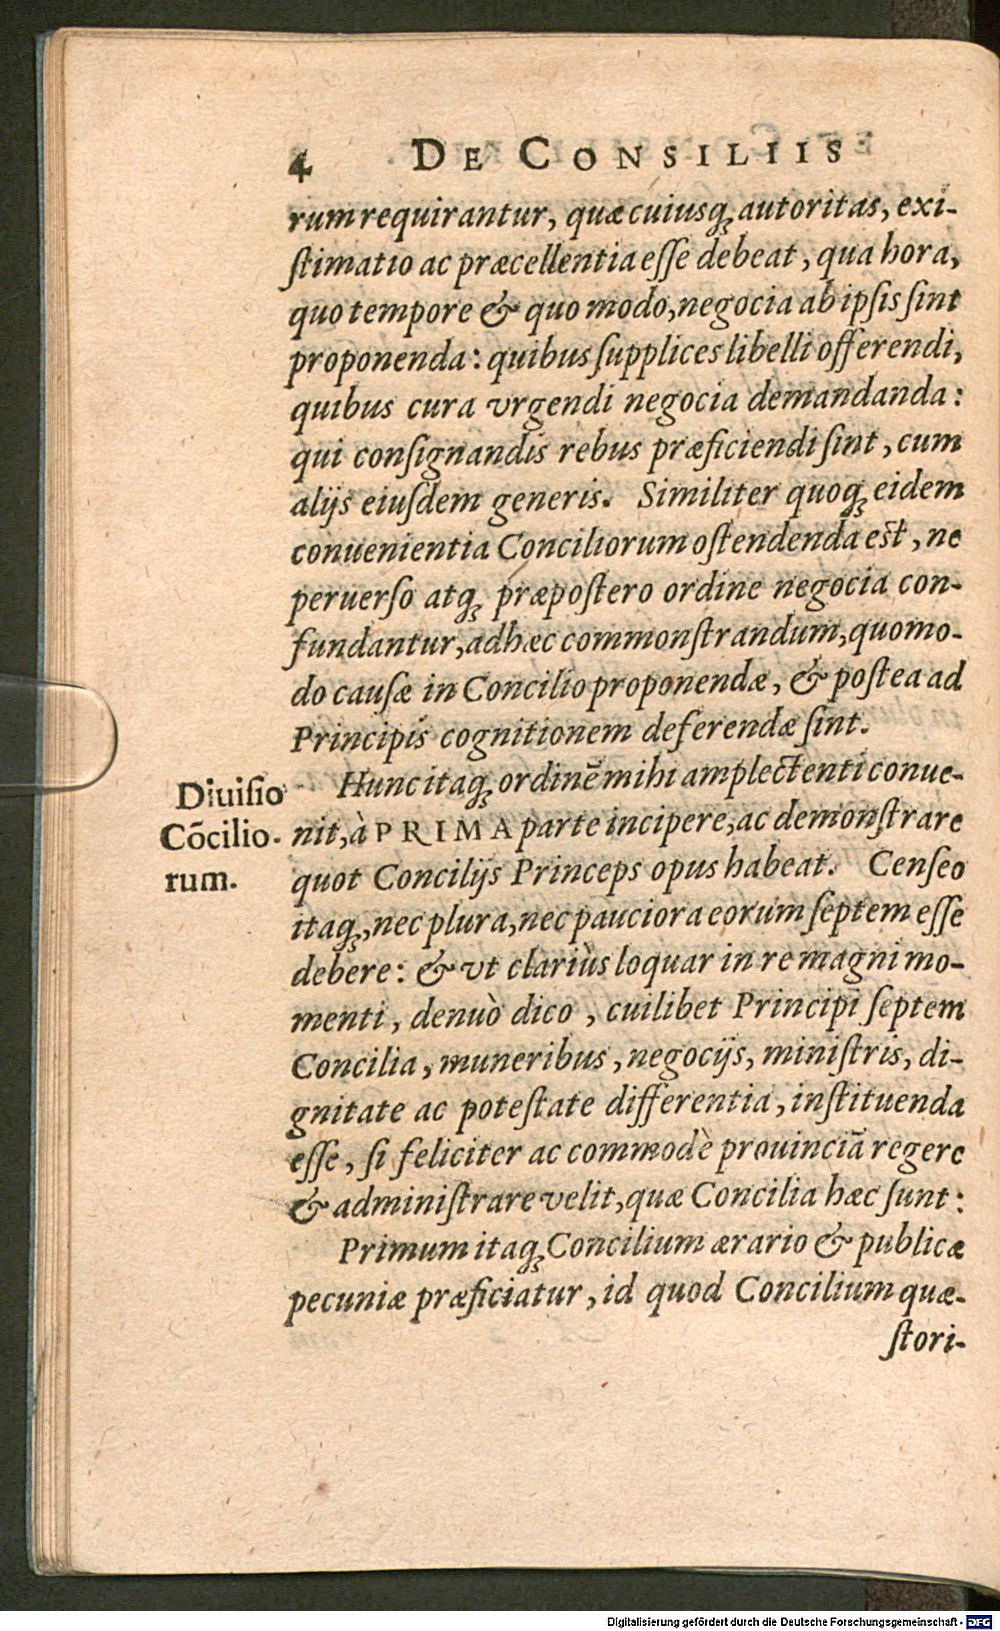 4 DE CONSILIIS
rum requirantur, quæ cuiusq̃ autoritas, exi-
ſtimatio ac præcellentia eſſe debeat, qua hora,
quo tempore & quo modo, negocia ab ipſis ſint
proponenda: quibus ſupplices libelli offerendi,
quibus cura vrgendi negocia demandanda:
qui conſignandis rebus præficiendi ſint, cum
alijs eiuſdem generis. Similiter quoq̃ eidem
conuenientia Conciliorum oſtendenda eſt, ne
peruerſo atq̃ præpoſtero ordine negocia con-
fundantur, adhæc commonſtrandum, quomo-
do cauſæ in Concilio proponendæ, & poſtea ad
Principis cognitionem deferendæ ſint.
Diuiſio
Cõcilio-
rum.
Hunc itaq̃ ordinẽ mihi amplectenti conue-
nit, à PRIMA parte incipere, ac demonſtrare
quot Concilijs Princeps opus habeat. Cenſeo
itaq̃, nec plura, nec pauciora eorum ſeptem eſſe
debere: & vt clariùs loquar in re magni mo-
menti, denuò dico, cuilibet Principi ſeptem
Concilia, muneribus, negocijs, miniſtris, di-
gnitate ac poteſtate differentia, inſtituenda
eſſe, ſi feliciter ac commodè prouinciã regere
& adminiſtrare velit, quæ Concilia hæc ſunt:
Primum itaq̃ Concilium ærario & publicæ
pecuniæ præficiatur, id quod Concilium quæ-
ſtori-
Digitalisierung gefördert durch die Deutsche Forschungsgemeinschaft - DFG